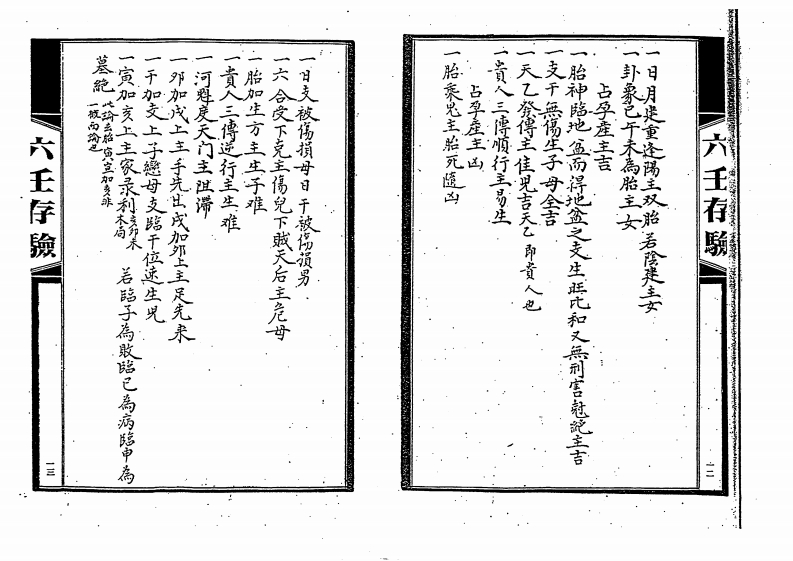 六壬存驗
一二
一日月建重逢陽主双胎若陰建主女
一卦象巳午未為胎主女
占孕產主吉
一胎神臨地盆而得地盆之支生旺比和又無刑害尅絕主吉
一支干無傷生子母全吉
一天乙發傳主佳兒吉天乙即貴人也
一貴人三傳順行主易生
占孕產主凶
一胎乘鬼主胎死隨凶
一日支被傷損母日干被傷損男
一六合受下克主傷兒下賊天后主危母
一胎加生方主生子难
一貴人三傳逆行主生难
一河魁度天門主阻滯
一夘加戌上主手先出戌加夘上主足先来
一干加支上子戀母支臨干位速生兒
一寅加亥上主家录利亥卯未木局若臨子為敗臨巳為病臨申為
墓絕此論去胎寅宜加亥非一概而論也
六壬存驗
一三